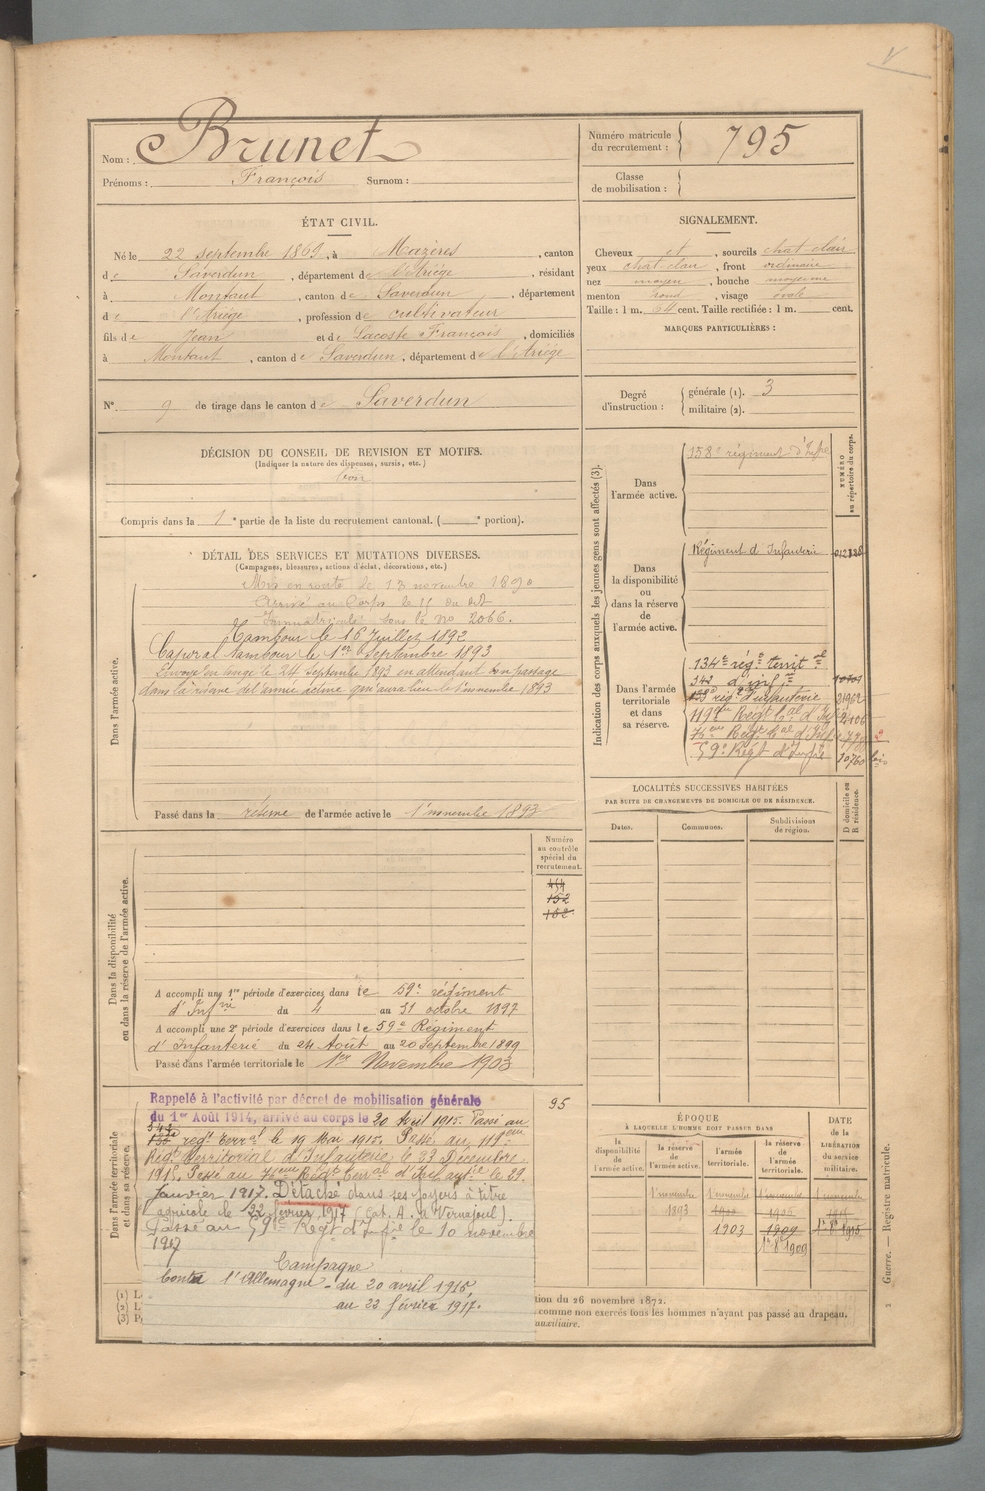 Nom : Brunet
Prénoms : François Surnom :
Numéro matricule du recrutement : 795
Classe de mobilisation :
ÉTAT CIVIL.
Né le 22 septembre 1869, à Mazères, canton
de Saverdun, département de l'Ariège, résidant
à Montaut, canton de Saverdun, département
de l'Ariège, profession de cultivateur
fils de Jean et de Lacoste François, domiciliés
à Montaut, canton de Saverdun, département de l'Ariège
N° 9 de tirage dans le canton de Saverdun
SIGNALEMENT.
Cheveux et, sourcils chat-clair
yeux chat-clair, front ordinaire
nez moyen, bouche moyenne
menton rond, visage ovale
Taille : 1 m. 64 cent. Taille rectifiée : 1 m. cent.
MARQUES PARTICULIÈRES :
Degré d'instruction : générale (1). 3
militaire (2).
DÉCISION DU CONSEIL DE REVISION ET MOTIFS.
(Indiquer la nature des dispenses, sursis, etc.)
bon
Compris dans la 1e partie de la liste du recrutement cantonal. ( e portion).
DÉTAIL DES SERVICES ET MUTATIONS DIVERSES.
(Campagnes, blessures, actions d'éclat, décorations, etc.)
Dans l'armée active.
Mis en route le 13 novembre 1890
Arrivé au Corps le 15 du dit
Immatriculé sous le no 2066.
Tambour le 16 Juillet 1892
Caporal tambour le 1er Septembre 1893
Envoyé en congé le 24 Septembre 1893 en attendant son passage
dans la réserve de l'armée active qui aura lieu le 1er novembre 1893
Passé dans la réserve de l'armée active le 1er novembre 1893
Indication des corps auxquels les jeunes gens sont affectés (3).
NUMÉRO au répertoire du corps.
Dans l'armée active.
158e régiment d'Inf.rie
Dans la disponibilité ou dans la réserve de l'armée active.
Régiment d'Infanterie
Dans l'armée territoriale et dans sa réserve.
134e régt territ al
343 d'inf ie
133e régt d'Infanterie 21962
119e Regt tal d'Inf 2106
76eme Regt tal d'Inf
59e Regt d'Infie 10760 bis
LOCALITÉS SUCCESSIVES HABITÉES
PAR SUITE DE CHANGEMENTS DE DOMICILE OU DE RÉSIDENCE.
Dates.
Communes.
Subdivisions de région.
D domicile ou R résidence.
Numéro au contrôle spécial du recrutement.
444
152
162
Dans la disponibilité ou dans la réserve de l'armée active.
A accompli une 1re période d'exercices dans le 59e régiment
d'Infrie du 4 au 31 octobre 1897
A accompli une 2e période d'exercices dans le 59e Régiment
d'Infanterie du 24 Août au 20 Septembre 1899
Passé dans l'armée territoriale le 1er Novembre 1903
Dans l'armée territoriale et dans sa réserve.
95
Rappelé à l'activité par décret de mobilisation générale
du 1er Août 1914, arrivé au corps le 20 Avril 1915. Passé au
343
133e régt terral le 19 Mai 1915. Passé au 119eme
Régt Territorial d'Infanterie le 23 Décembre
1915. Passé au 76eme Régt terral d'Inf le 29
Janvier 1917. Détaché dans ses foyers à titre
agricole le 22 février 1917 (Cat. A. à Vernajoul).
Passé au 59e Regt d'Infie le 10 novembre
1917
Campagne
Contre l'Allemagne - du 20 avril 1915,
au 22 février 1917.
ÉPOQUE
À LAQUELLE L'HOMME DOIT PASSER DANS
la disponibilité de l'armée active.
la réserve de l'armée active.
l'armée territoriale.
la réserve de l'armée territoriale.
DATE de la LIBÉRATION du service militaire.
1er novembre 1er novembre 1er novembre 1er novembre
1893 1903 1915 1915
1903 1909 1er 8e 1915
1er 8e 1909
(1) L
(2) L'
(3) P
tion du 26 novembre 1872.
comme non exercés tous les hommes n'ayant pas passé au drapeau.
auxiliaire.
Guerre. — Registre matricule. 1